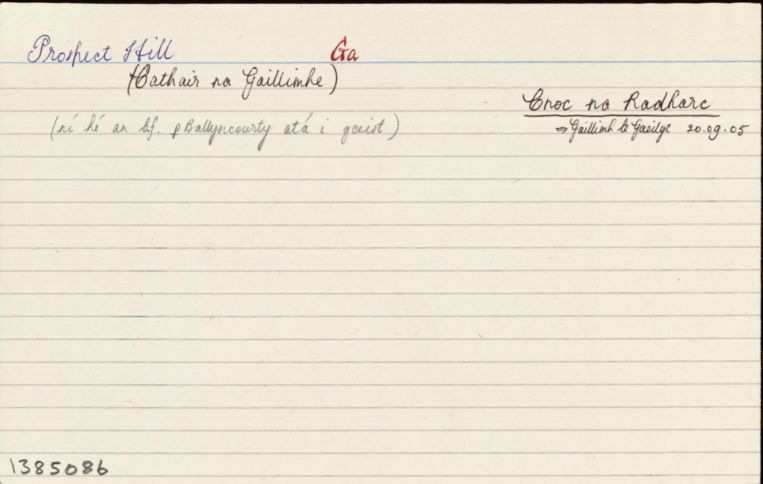 Prospect Hill Ga
(Cathair na Gaillimhe)
Cnoc na Radharc
⇒ Gaillimh le Gaeilge 20.09.05
(ní hé an bf. p Ballyncourty atá i gceist)
1385086